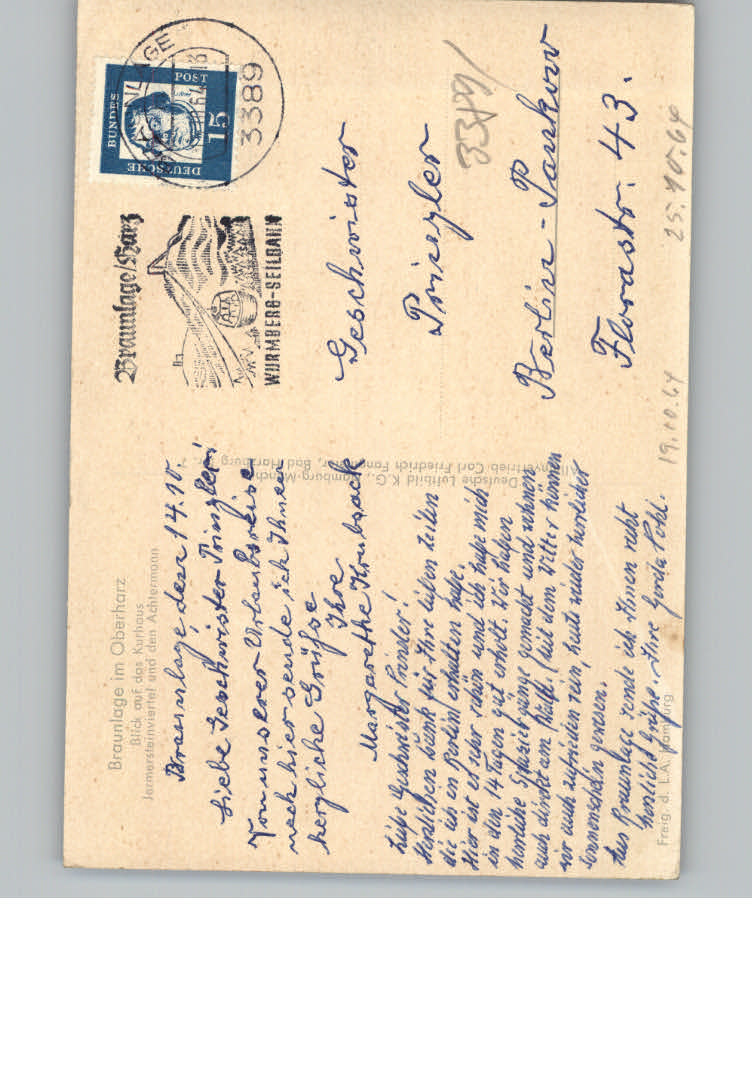 Braunlage im Oberharz
Blick auf das Kurhaus
Jermersteinviertel und den Achtermann
Braunlage den 14.10.
Liebe Geschwister Prinzler!
Von unserer Urlaubsreise
nach hier sende ich Ihnen
herzliche Grüße
Ihre
Margarethe
Liebe Geschwister
Herzlichen Dank für Ihre lieben Zeilen
die ich in Berlin erhalten habe.
Hier ist es sehr schön und ich habe mich
in den 14 Tagen gut erholt. Wir haben
herrliche Spaziergänge gemacht und wohnen
auch direkt am Mit dem Wetter können
wir auch zufrieden sein, heute wieder herrlicher
Sonnenschein gewesen.
Aus Braunlage sende ich Ihnen recht
herzliche Grüße. Ihre Gerda Pohl.
Freig. d. L.A. Hamburg
Deutsche Luftbild K.G., Hamburg-München
Alleinvertrieb Carl Friedrich Fangmeier, Bad Harzburg
Braunlage/Harz
WURMBERG-SEILBAHN
DEUTSCHE
BUNDES
POST
15
3389
Geschwister
Prinzler
3389/
Berlin-Pankow
Florastr. 43.
19.10.64
25.10.64